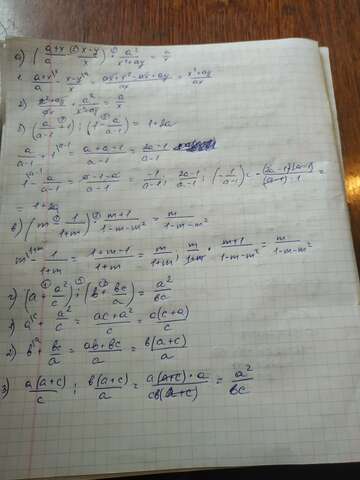 а) (a+x/a - x-y/x) · a²/x²+ay = a/x
1. a+x/a - x-y/x = ax+x²-ax+ay/ax = x²+ay/ax
2) x²+ay/ax · a²/x²+ay = a/x
б) (a/a-1 + 1) : (1 - a/a-1) = 1+2a
a/a-1 + 1 = a+a-1/a-1 = 2a-1/a-1
1 - a/a-1 = a-1-a/a-1 = -1/a-1 ; 2a-1/a-1 : (-1/a-1) = -(2a-1)(a-1)/(a-1)·1 =
= 1+2a
в) (m - 1/1+m) · m+1/1-m-m² = m/1-m-m²
m - 1/1+m = 1+m-1/1+m = m/1+m ; m/1+m · m+1/1-m-m² = m/1-m-m²
г) (a + a²/c) : (b + bc/a) = a²/bc
1) a + a²/c = ac+a²/c = a(c+a)/c
2) b + bc/a = ab+bc/a = b(a+c)/a
3) a(a+c)/c : b(a+c)/a = a(a+c)·a/cb(a+c) = a²/bc